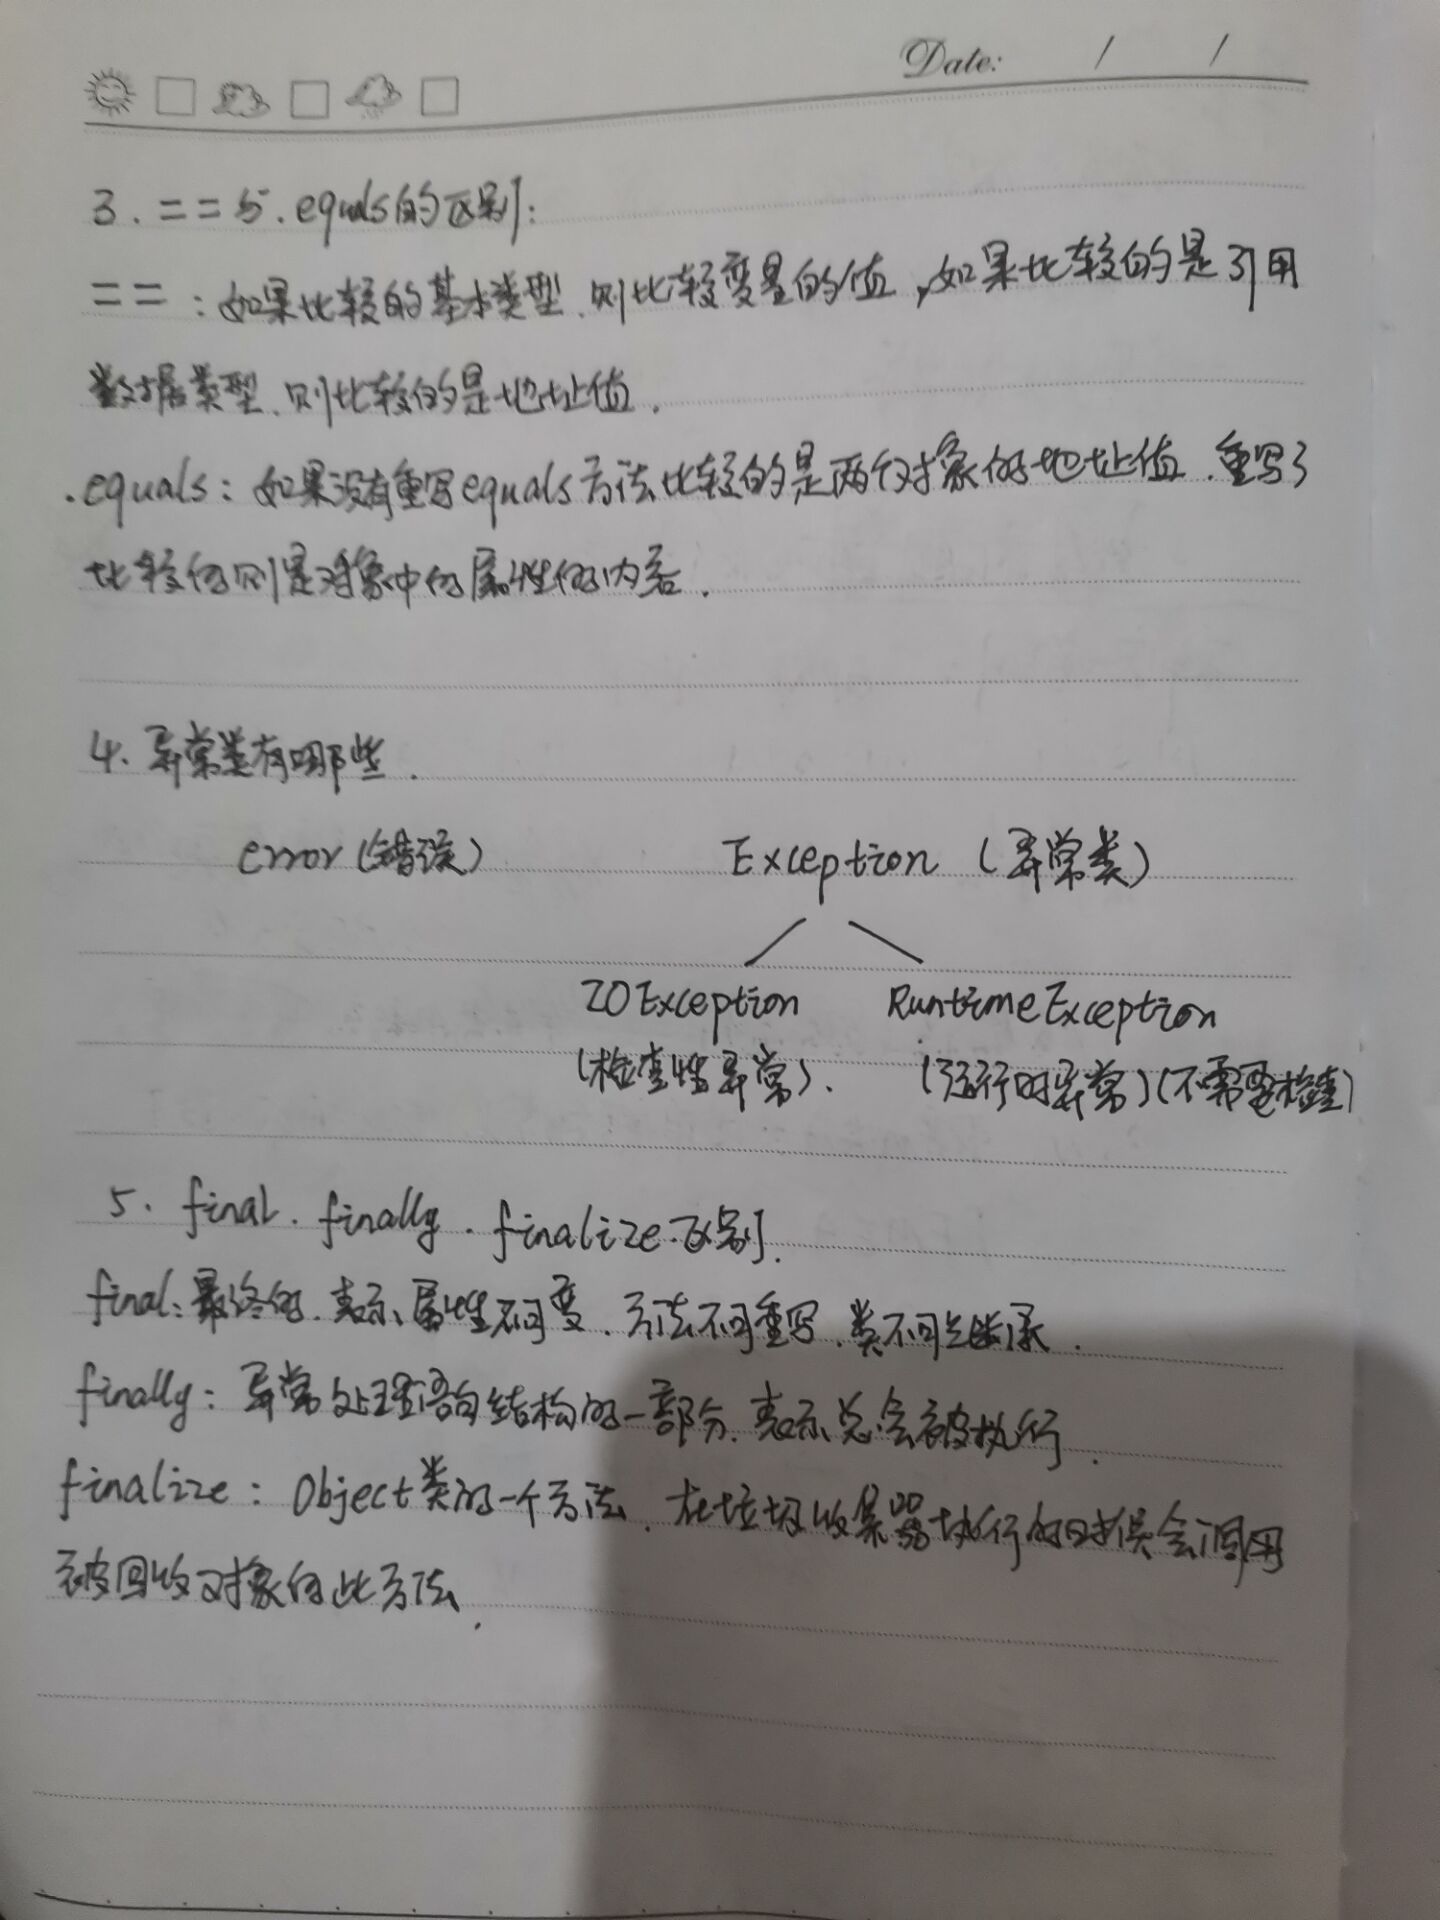 Date: / /
3. == 与. equals的区别:
==:如果比较的基本类型、则比较变量的值,如果比较的是引用
数据类型、则比较的是地址值.
.equals:如果没有重写equals方法比较的是两个对象的地址值、重写了
比较的则是对象中的属性的内容.
4. 异常类有哪些.
error(错误) Exception (异常类)
IOException RuntimeException
(检查性异常). (运行时异常)(不需要检查)
5. final. finally. finalize.区别.
final:最终的.表示、属性不可变.方法不可重写.类不可继承.
finally:异常处理语句结构的一部分.表示总会被执行.
finalize: Object类的一个方法.在垃圾收集器执行的时候会调用
被回收对象的此方法.